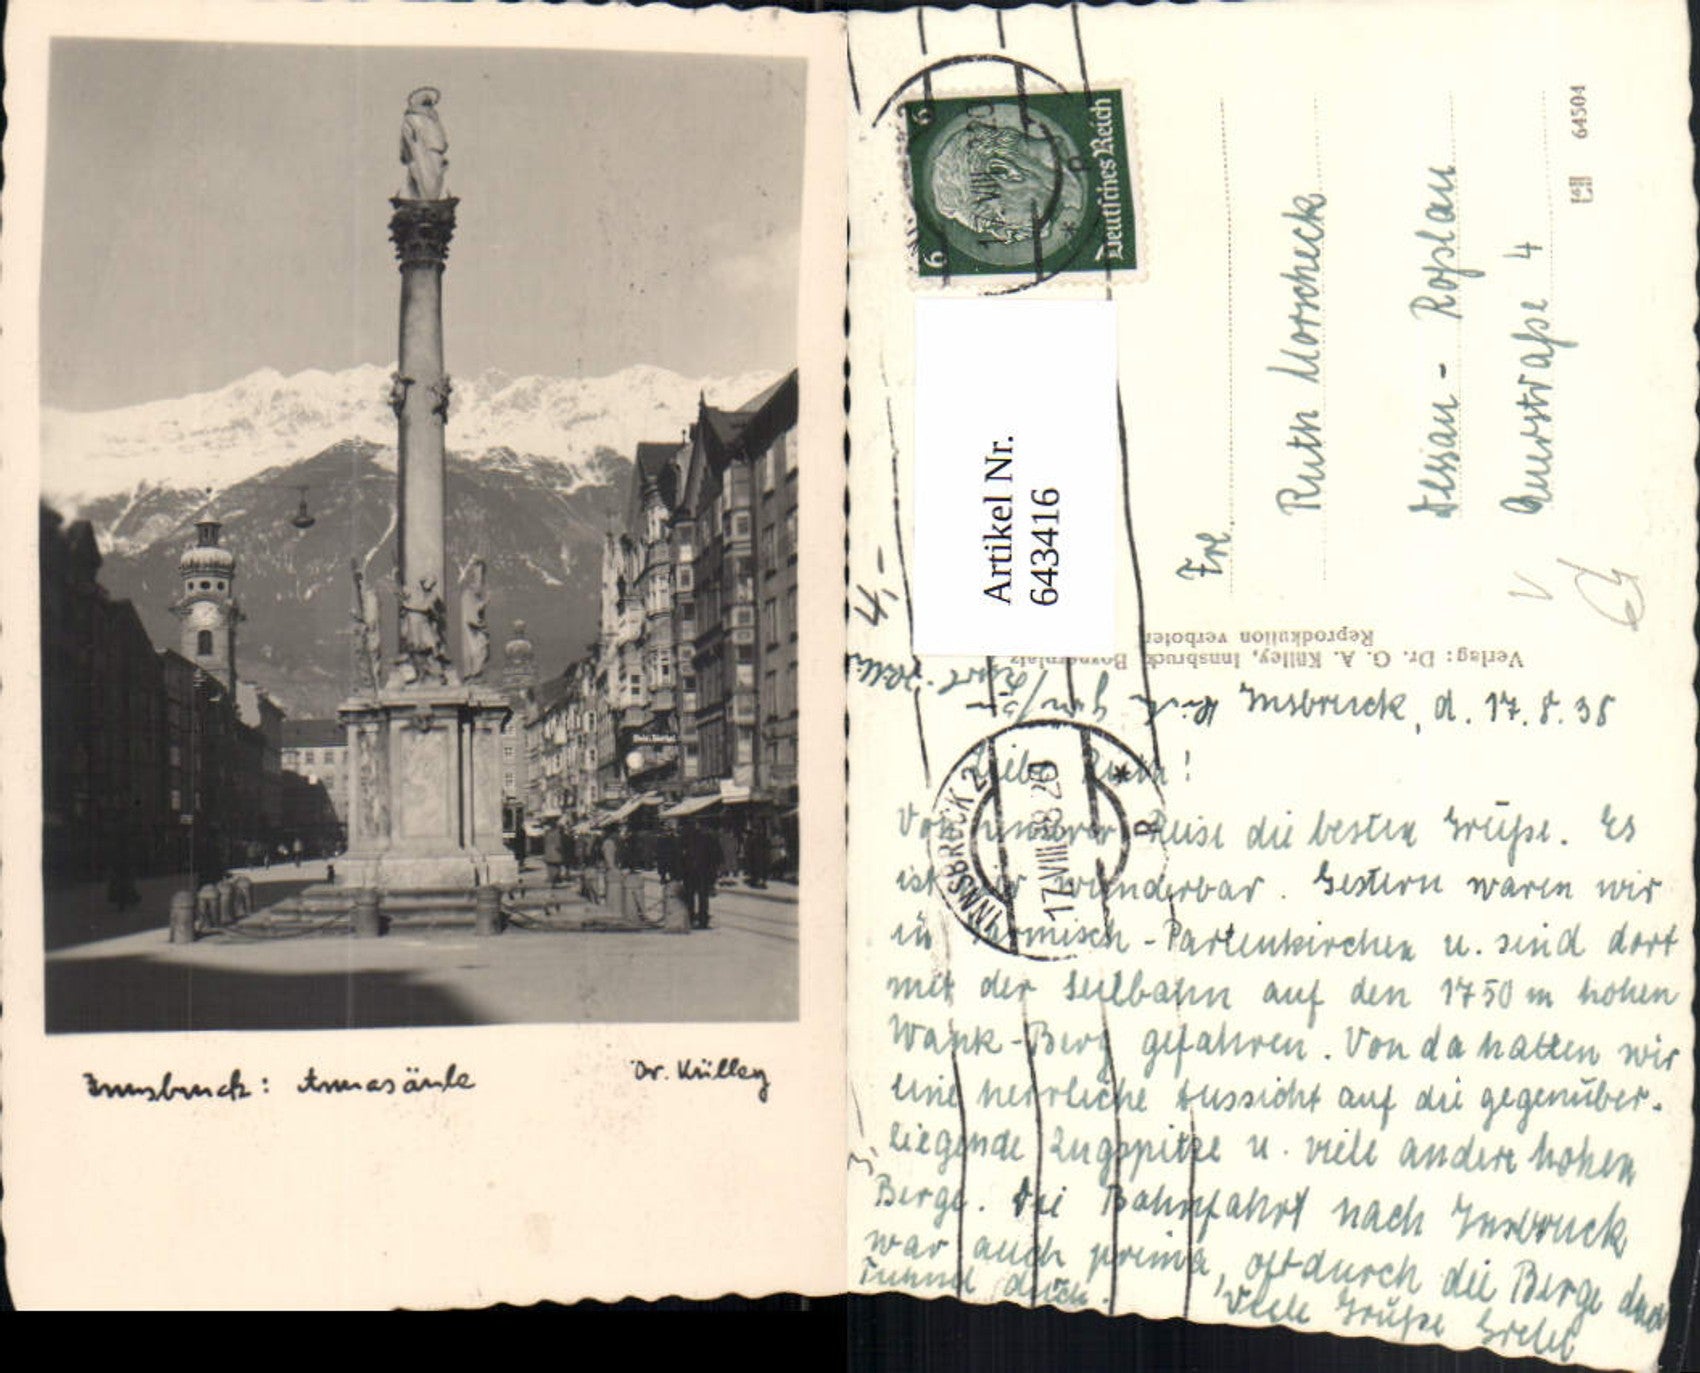 Innsbruck: Annasäule
Dr. Külley
6
6
Deutsches Reich
Artikel Nr.
643416
Frl.
Ruth Morscheck
Dessau - Roßlau
Querstraße 4
64504
Verlag: Dr. G. A. Külley, Innsbruck, Bozner platz
Reprodkution verboten
4,-
INNSBRUCK 2
17.VIII.38 20
Insbruck, d. 17.8.38
Liebe Ruth!
Von unserer Reise die besten Grüße. Es
ist hier wunderbar. Gestern waren wir
in Garmisch-Partenkirchen u. sind dort
mit der Seilbahn auf den 1750 m hohen
Wank-Berg gefahren. Von da hatten wir
eine herrliche Aussicht auf die gegenüber-
liegende Zugspitze u. viele andere hohen
Berge. Die Bahnfahrt nach Insbruck
war auch prima, oft durch die Berge
Tunnel durch.
Viele Grüße Gretel